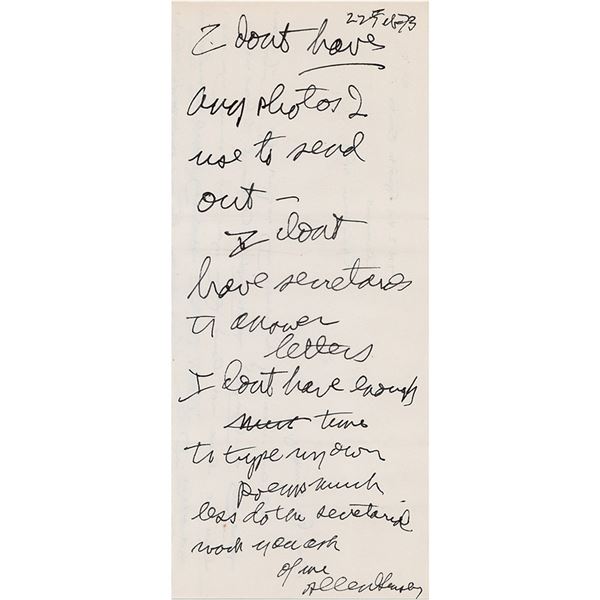 22 Feb 73
I dont have
any photos I
use to send
out —
I dont
have secretares
to answer
letters
I dont have enough
time
to type my own
poems much
less do the secretarial
work you ask
of me
Allen Ginsberg